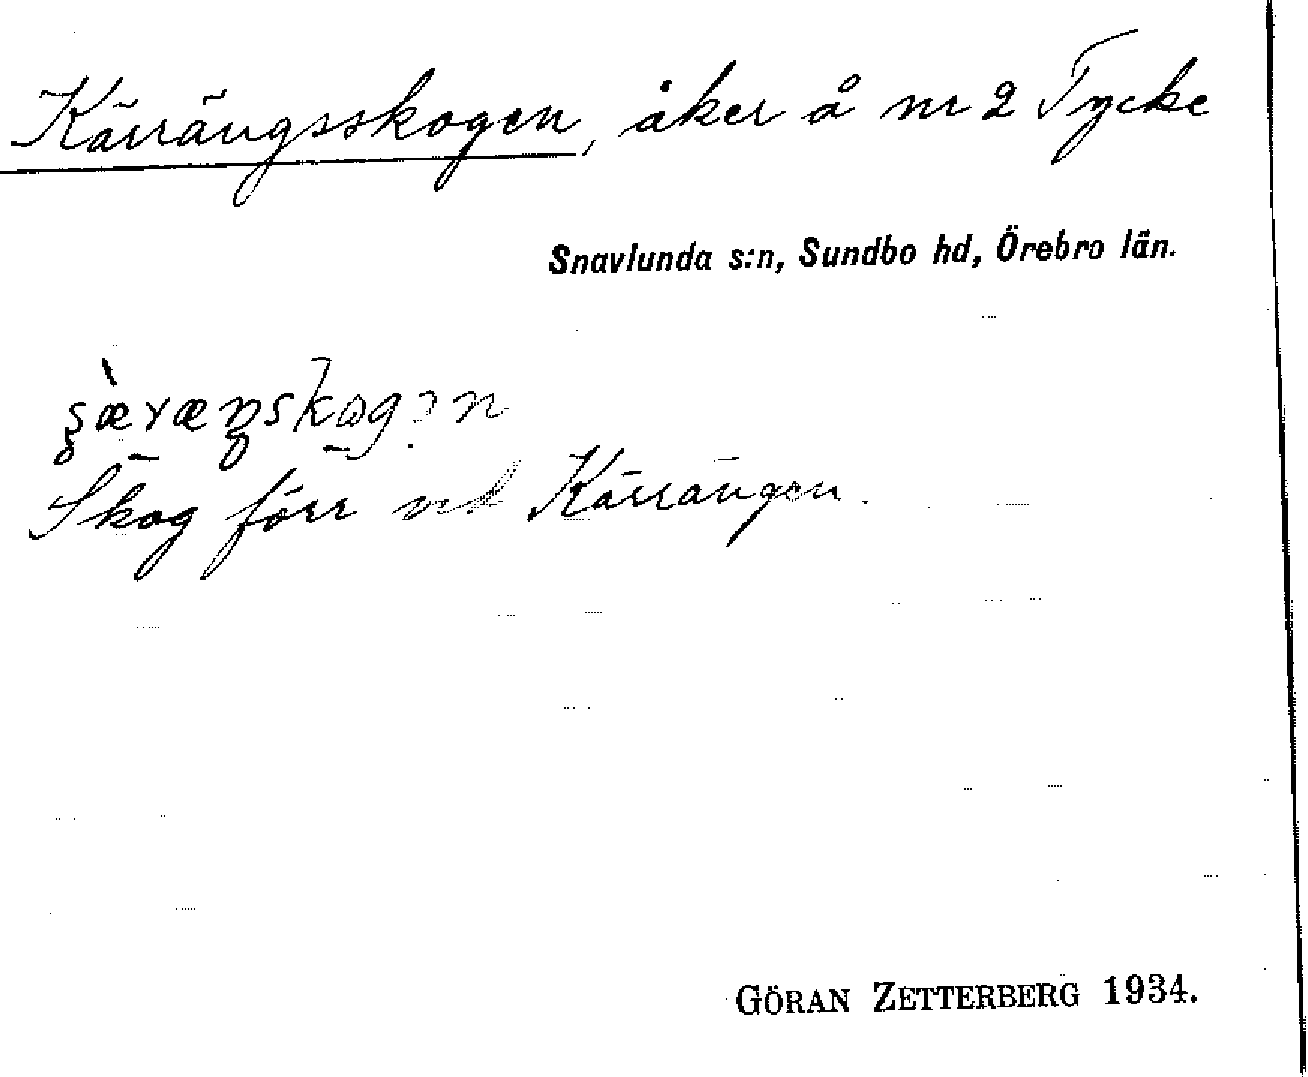 Kärrängsskogen, åker å nr 2 Tycke
Snavlunda s:n, Sundbo hd, Örebro län.
Skog förr vid Kärrängen.
GÖRAN ZETTERBERG 1934.